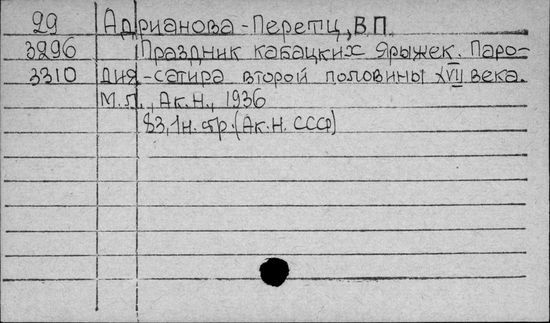 29 Адрианова-Перетц, В.П.
3296 Праздник кабацких ярыжек. Паро-
3310 дия-сатира второй половины XVII века.
М.Л., Ак.Н., 1936
83,1н.стр.(Ак.Н. СССР)